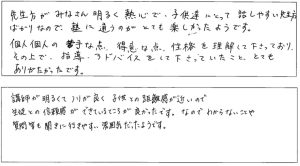 先生方がみなさん明るく熱心で、子供達にとって話しやすい先生
ばかりなので、塾に通うのがとても楽しかったようです。
個人個人の苦手な点、得意な点、性格を理解して下さっており、
その上で、指導、アドバイスをして下さっていたこと、とても
ありがたかったです。
講師が明るくてノリが良く子供との距離感が近いので
生徒との信頼感ができているところが良かったです。なのでわからないことや
質問等も聞きに行きやすい雰囲気だったようです。